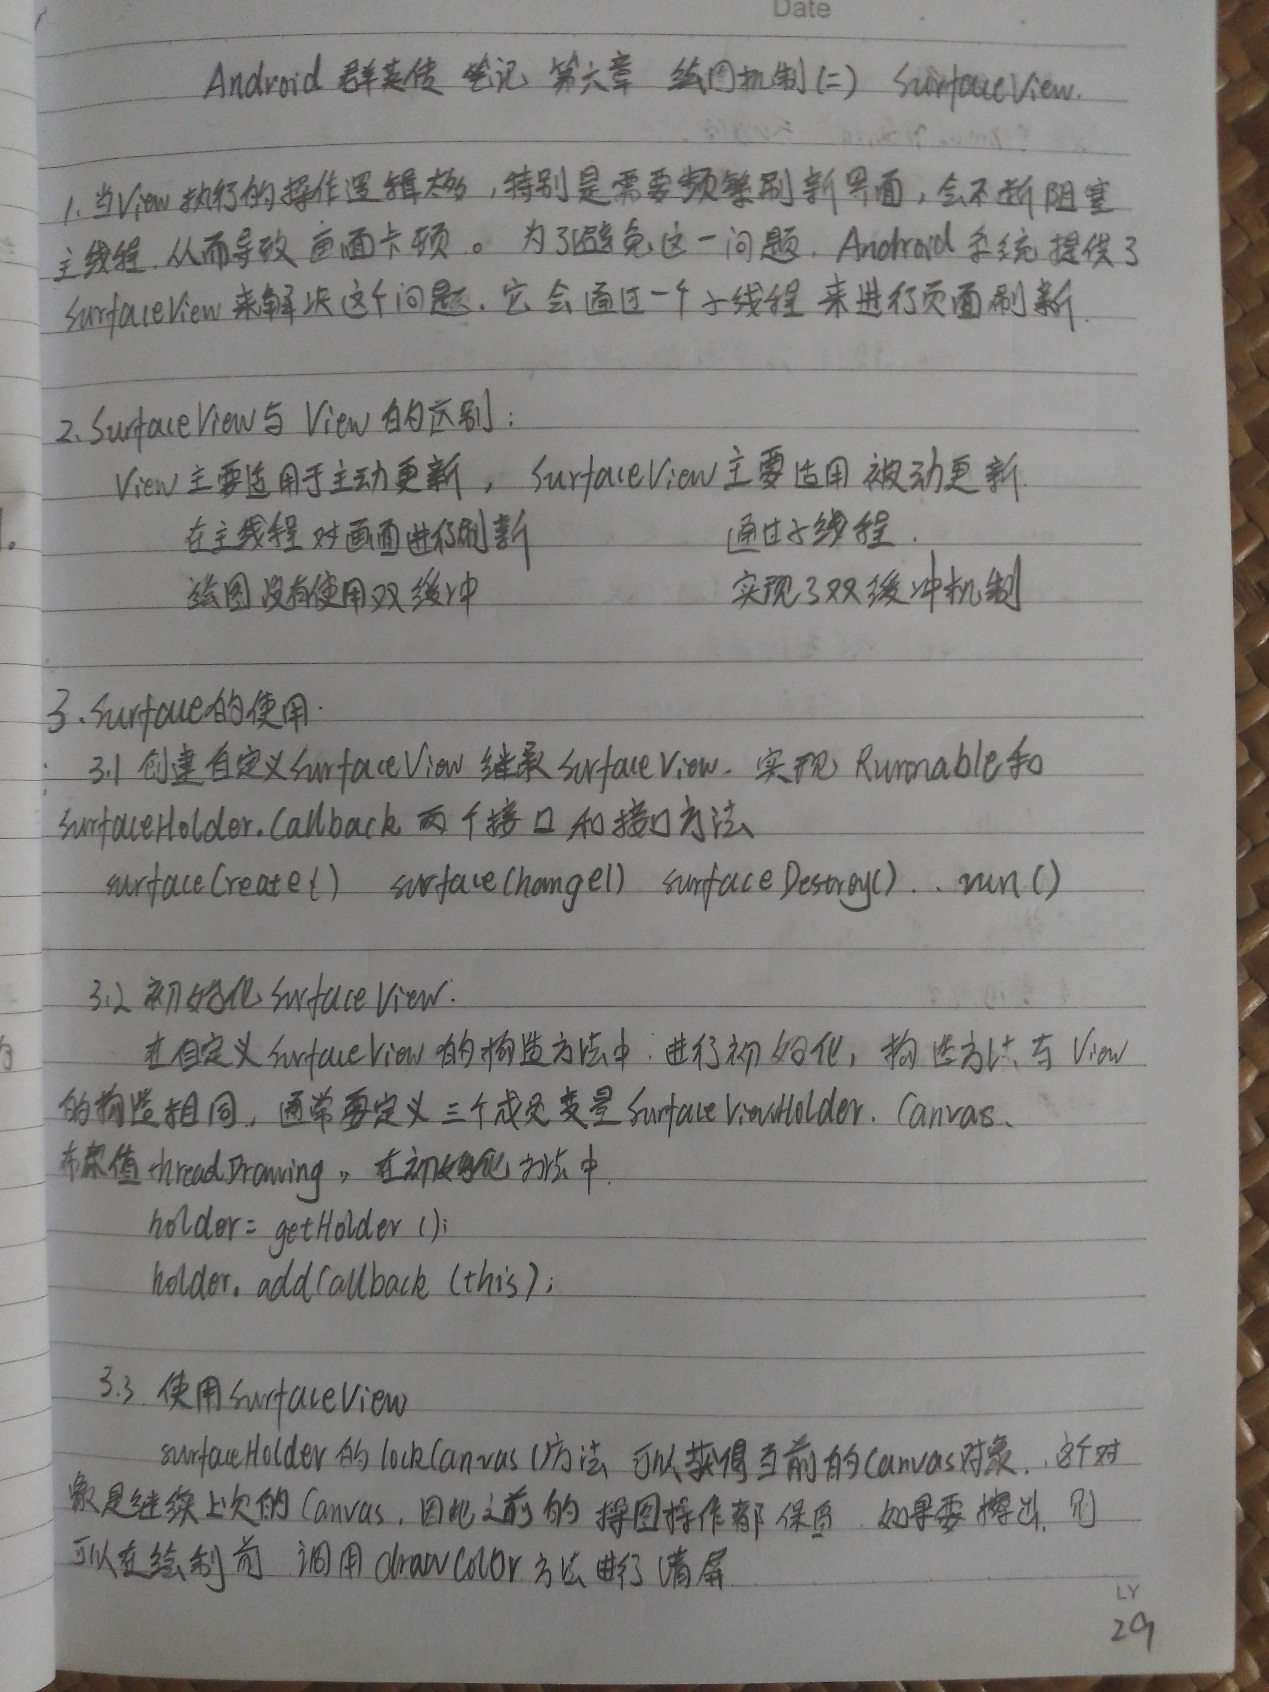 Date
Android 群英传 笔记 第六章 绘图机制(二) SurfaceView.
1. 当View执行的操作逻辑太多,特别是需要频繁刷新界面,会不断阻塞
主线程.从而导致画面卡顿。为了避免这一问题.Android系统提供了
SurfaceView来解决这个问题.它会通过一个子线程来进行页面刷新.
2. SurfaceView与View的区别:
View主要适用于主动更新, SurfaceView主要适用被动更新.
在主线程对画面进行刷新 通过子线程.
绘图没有使用双缓冲 实现了双缓冲机制
3. Surface的使用.
3.1 创建自定义SurfaceView 继承SurfaceView. 实现Runnable和
SurfaceHolder.Callback 两个接口和接口方法
surfaceCreate() surfaceChange() surfaceDestroy() .. run()
3.2 初始化SurfaceView.
在自定义SurfaceView的构造方法中.进行初始化,构造方法与View
的构造相同,通常要定义三个成员变量SurfaceViewHolder. Canvas、
布尔值threadDrawing,在初始化方法中.
holder= getHolder ();
holder. addCallback (this);
3.3 使用SurfaceView
surfaceHolder的lockCanvas()方法 可以获得当前的Canvas对象.这个对
象是继续上次的Canvas,因此之前的操图操作都保留 如果要擦出,则
可以在绘制前 调用drawColor方法进行清屏
LY
29